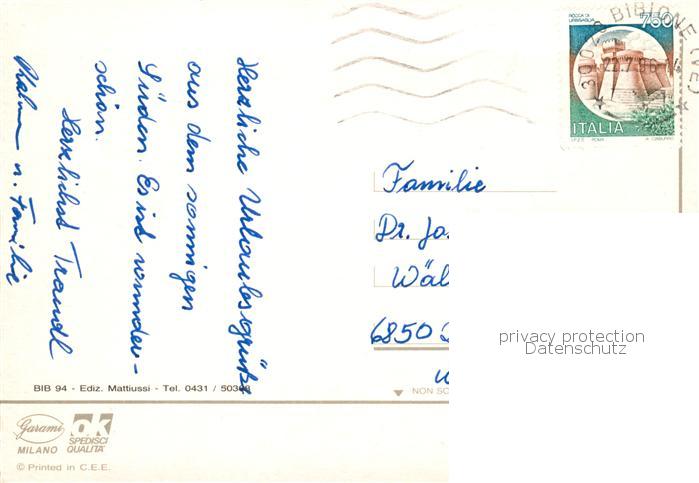 Herzliche Urlaubsgrüße
aus dem sonnigen
Süden. Es ist wunder-
schön.
Herzlichst Traudl
u. Familie
ROCCA DI
URBISAGLIA
750
ITALIA
I.P.Z.S. ROMA
BIBIONE
22.7.96
Familie
Dr. Jo
Wäl
6850
privacy protection
Datenschutz
BIB 94 - Ediz. Mattiussi - Tel. 0431 /
NON SC
Garami
MILANO
ok
SPEDISCI
QUALITÀ
© Printed in C.E.E.